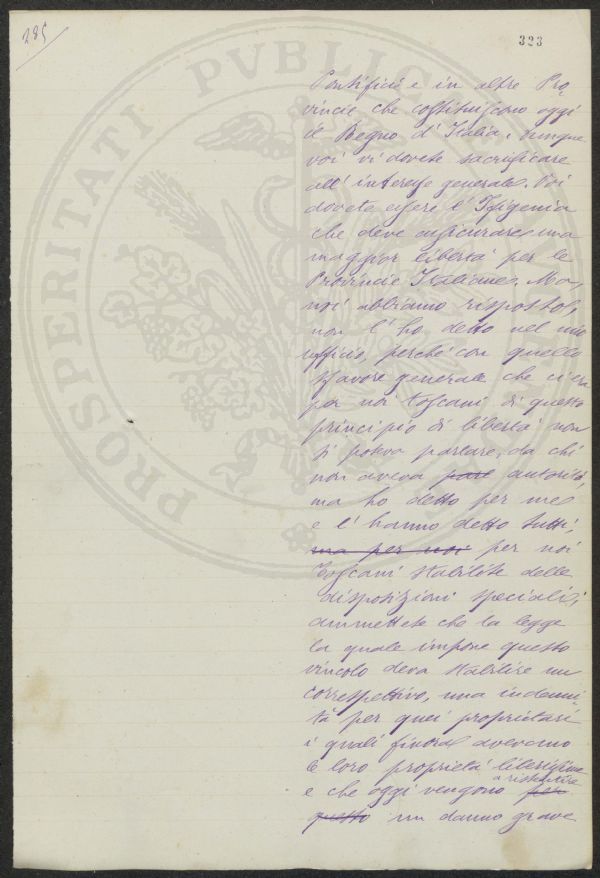 285
323
PROSPERITATI PVBLICAE
Pontificie e in altre Pro
vincie che costituiscono oggi
il Regno d'Italia, dunque
voi vi dovete sacrificare
all'interesse generale. Voi
dovete essere l'Ifigenia
che deve assicurare una
maggior libertà per le
Provincie Italiane. Ma,
noi abbiamo risposto,
non l'ho detto nel mio
ufficio, perché con quello
sfavore generale che ci era
per noi toscani di questo
principio di libertà non
si poteva parlare, da chi
non aveva autorità,
ma ho detto per me
e l'hanno detto tutti,
ma per noi per noi
Toscani stabilite delle
disposizioni speciali,
ammettete che la legge
la quale impone questo
vincolo deva stabilire un
correspettivo, una indenni
tà per quei proprietari
i quali finora avevano
le loro proprietà
e che oggi vengono a risentire per
questo un danno grave